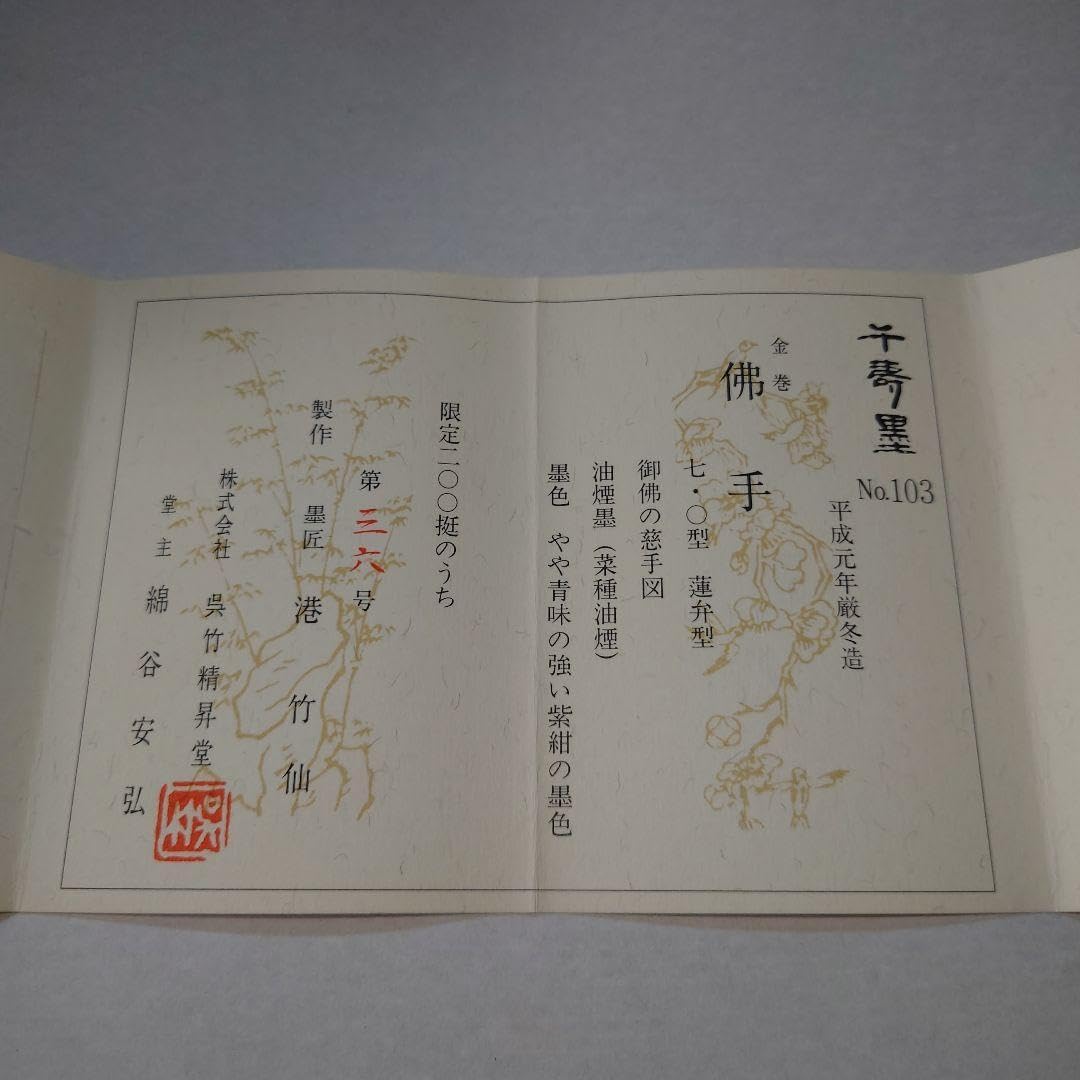 千寿墨
No.103
平成元年厳冬造
金巻
佛手
七・〇型 蓮弁型
御佛の慈手図
油煙墨（菜種油煙）
墨色 やや青味の強い紫紺の墨色
限定二〇〇挺のうち
第三六号
製作 墨匠 港竹仙
株式会社 呉竹精昇堂
堂主 綿谷安弘